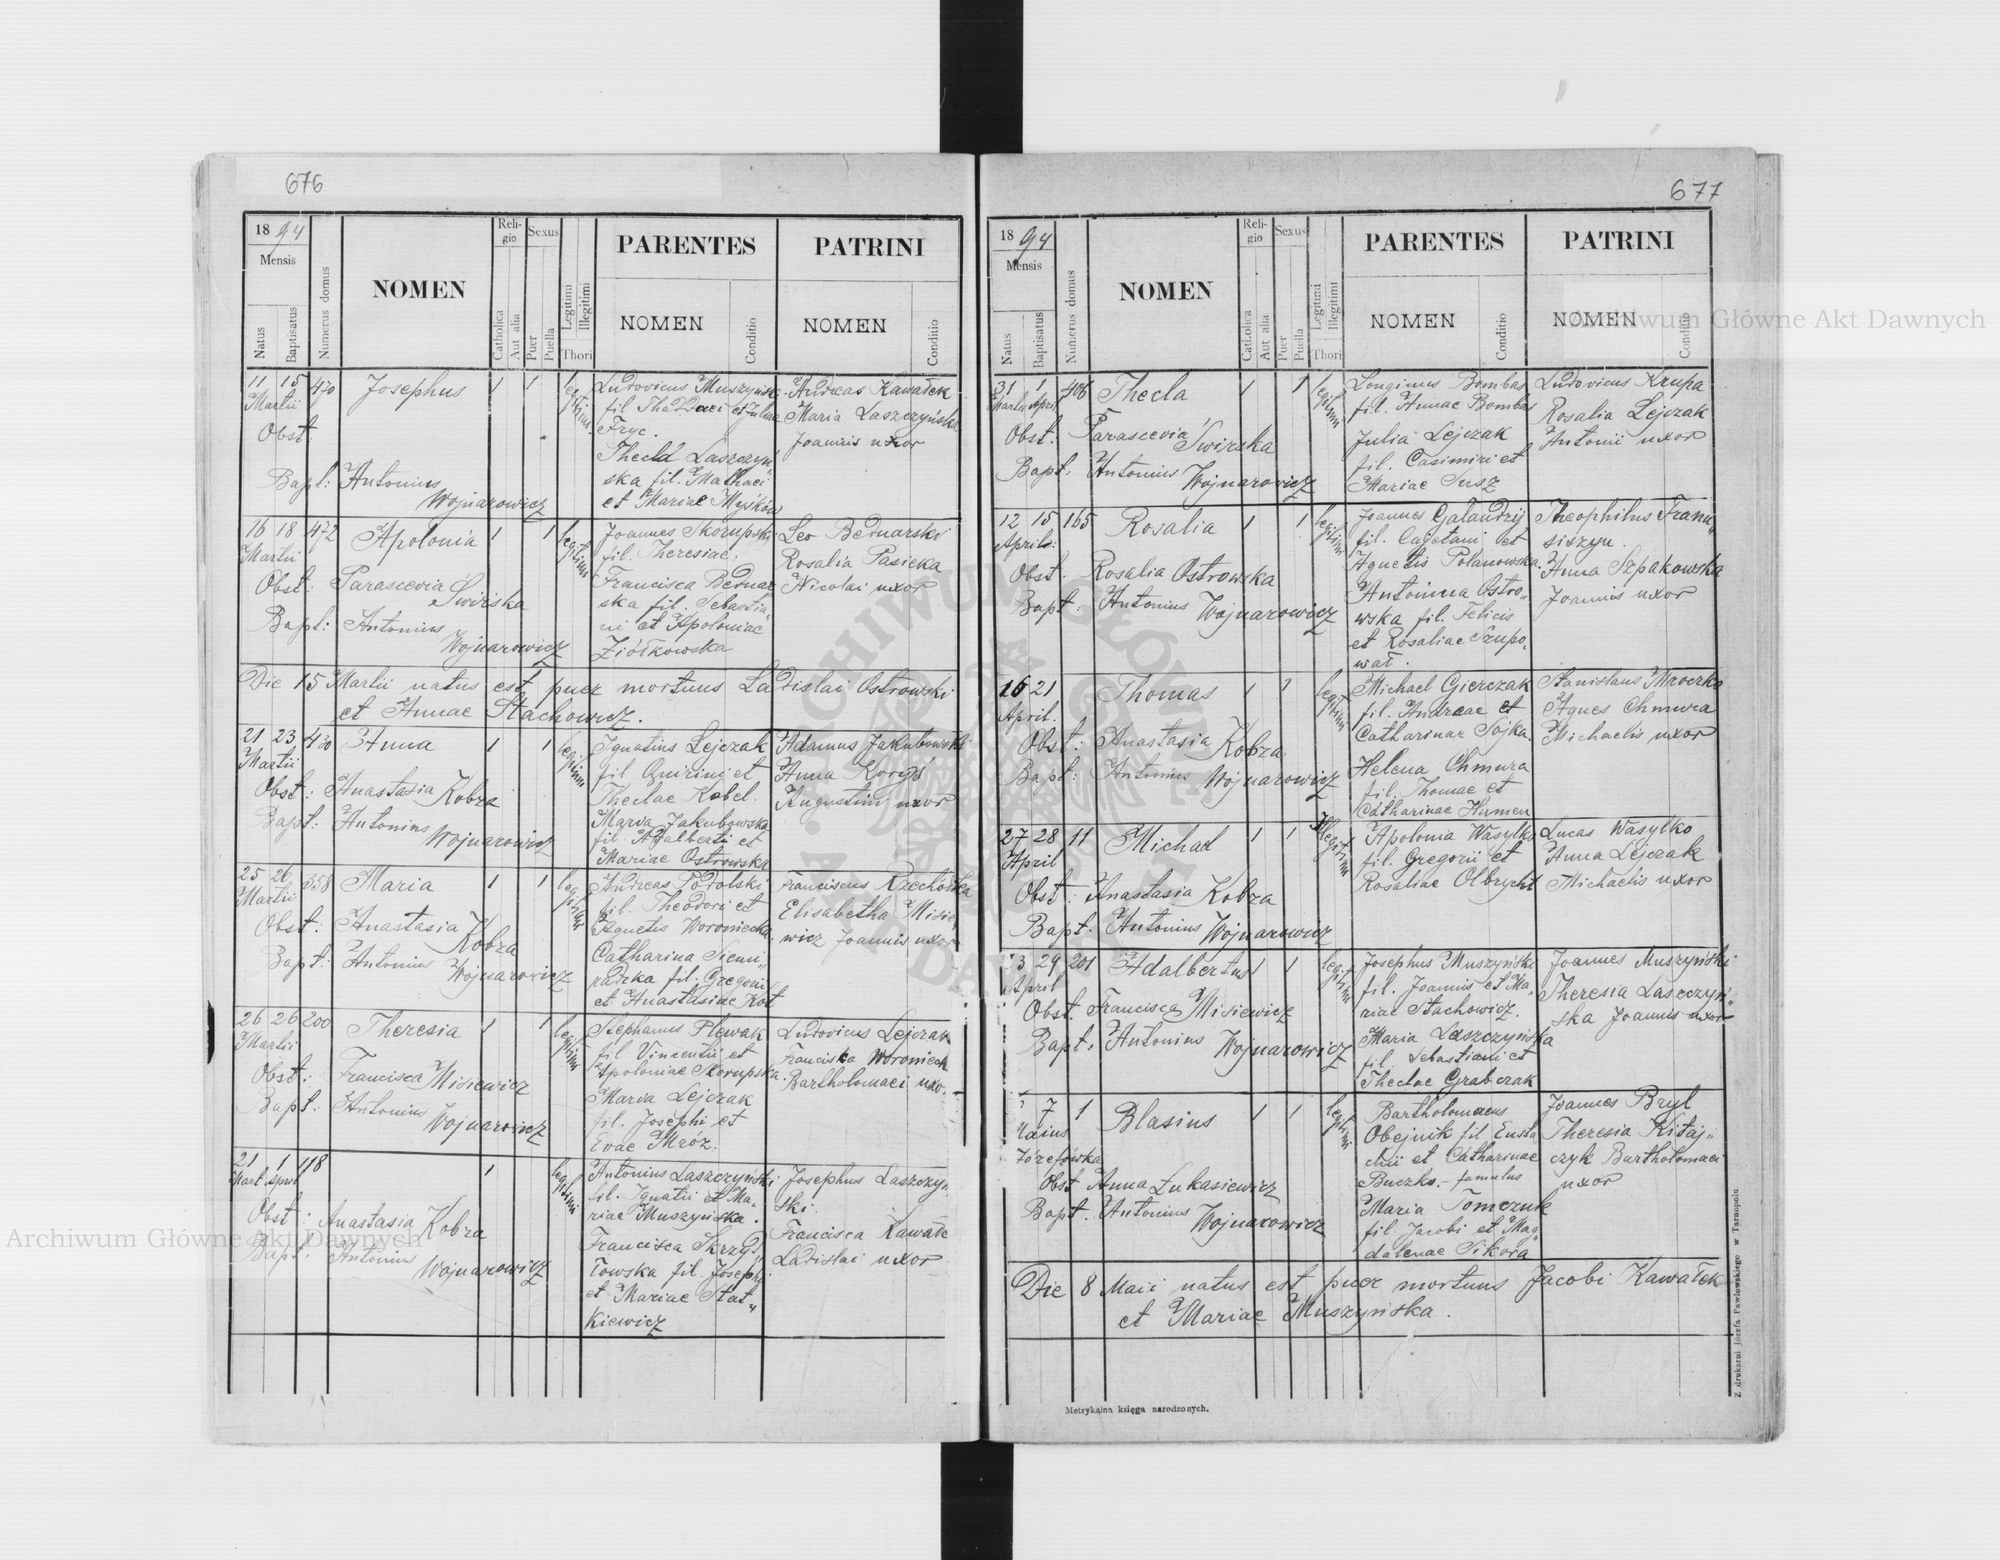 676
1894
Mensis
Natus
Baptisatus
Numerus domus
NOMEN
Religio
Catholica
Aut alia
Sexus
Puer
Puella
Legitimi
Illegitimi
Thori
PARENTES
NOMEN
Conditio
PATRINI
NOMEN
Conditio
11 15 470 Josephus 1 1 legitimi
Martii
Obst.
Bapt: Antonius
Wojnarowicz
Ludovicus Muszyńsk
fil Thaddaei et Juliae
Fryc.
Thecla Laszczyń
ska fil. Mathaei
et Mariae Myśków
Andreas Kawałek
Maria Laszczyńska
Joannis uxor
16 18 472 Apolonia 1 1 legitimi
Martii
Obst: Parascevia Świrska
Bapt: Antonius
Wojnarowicz
Joannes Skorupski
fil. Theresiae.
Francisca Bednar
ska fil. Sebastia
ni et Apoloniae
Ziółkowska
Leo Bednarski
Rosalia Pasieka
Nicolai uxor
Die 15 Martii natus est puer mortuus Ladislai Ostrowski
et Annae Stachowicz.
21 23 430 Anna 1 1 legitimi
Martii
Obst: Anastasia Kobza
Bapt: Antonius
Wojnarowicz
Ignatius Lejczak
fil Quirini et
Theclae Kobel.
Maria Jakubowska
fil Adalberti et
Mariae Ostrowska
Adamus Jakubowski
Anna Koryś
Augustini uxor
25 26 358 Maria 1 1 legitimi
Martii
Obst: Anastasia Kobza
Bapt: Antonius Wojnarowicz
Andreas Podolski
fil. Theodori et
Agnetis Woroniecka.
Catharina Siemi„
radzka fil. Gregorii
et Anastasiae Kot
Franciscus Rzechówka
Elisabetha Misie
wicz Joannis uxor
26 26 200 Theresia 1 1 legitimi
Martii
Obst: Francisca Misiewicz
Bapt: Antonius
Wojnarowicz
Stephanus Plewak
fil Vincentii et
Apoloniae Skorupska.
Maria Lejczak
fil. Josephi et
Evae Mróz.
Ludovicus Lejczak
Franciska Woronieck
Bartholomaei uxo.
21 1 118 1 legitimi
Mart April
Obst: Anastasia Kobza
Bapt. Antonius
Wojnarowicz
Antonius Laszczyński
fil. Ignatii et Ma-
riae Muszyńska.
Francisca Skrzyd
łowska fil. Josephi
et Mariae Stat„
kiewicz
Josephus Laszczy„
ski.
Francisca Kawałe
Ladislai uxor
677
1894
Mensis
Natus
Baptisatus
Numerus domus
NOMEN
Religio
Catholica
Aut alia
Sexus
Puer
Puella
Legitimi
Illegitimi
Thori
PARENTES
NOMEN
Conditio
PATRINI
NOMEN
Conditio
31 1 406 Thecla 1 1 legitimi
Martii April
Obst: Parascevia Świrska
Bapt: Antonius Wojnarowicz
Longinus Bombas
fil. Annae Bombas
Julia Lejczak
fil. Casimiri et
Mariae Susz
Ludovicus Krupa
Rosalia Lejczak
Antonii uxor
12 15 165 Rosalia 1 1 legitimi
Aprilis
Obst. Rosalia Ostrowska
Bapt: Antonius Wojnarowicz
Joannes Galandzij
fil. Cajetani et
Agnetis Polanowska.
Antonina Ostro„
wska fil. Felicis
et Rosaliae Szupo„
wał.
Theophilus Franu„
siszyn.
Anna Szpakowska
Joannis uxor
16 21 Thomas 1 1 legitimi
April.
Obst: Anastasia Kobza
Bapt: Antonius Wojnarowicz
Michael Gierczak
fil. Andreae et
Catharinae Sojka.
Helena Chmura
fil. Thomae et
Catharinae Humen
Stanislaus Mroczko
Agnes Chmura
Michaelis uxor
27 28 11 Michael 1 1 Illegitimi
April
Obst: Anastasia Kobza
Bapt. Antonius Wojnarowicz
Apolonia Wasylko
fil. Gregorii et
Rosaliae Olbrycht
Lucas Wasylko
Anna Lejczak
Michaelis uxor
3 29 201 Adalbertus 1 1 legitimi
April
Obst. Francisca Misiewicz
Bapt. Antonius Wojnarowicz
Josephus Muszyński
fil. Joannis et Ma-
riae Stachowicz.
Maria Laszczyńska
fil. Sebastiani et
Theclae Grabczak
Joannes Muszyński
Theresia Laszczyń„
ska Joannis uxor
7 1 Blasius 1 1 legitimi
Maius
Józefówka
Obst Anna Łukasiewicz
Bapt. Antonius Wojnarowicz
Bartholomaeus
Obejnik fil Eusta
chii et Catharinae
Buczko.- famulus
Maria Tomczuk
fil Jacobi et Mag„
dalenae Sikora
Joannes Bryl
Theresia Kitaj„
czyk Bartholomaei
uxor
Die 8 Maii natus est puer mortuus Jacobi Kawałek
et Mariae Muszyńska.
Metrykalna księga narodzonych.
Z drukarni Józefa Pawłowskiego w Tarnopolu
Archiwum Główne Akt Dawnych
Archiwum Główne Akt Dawnych